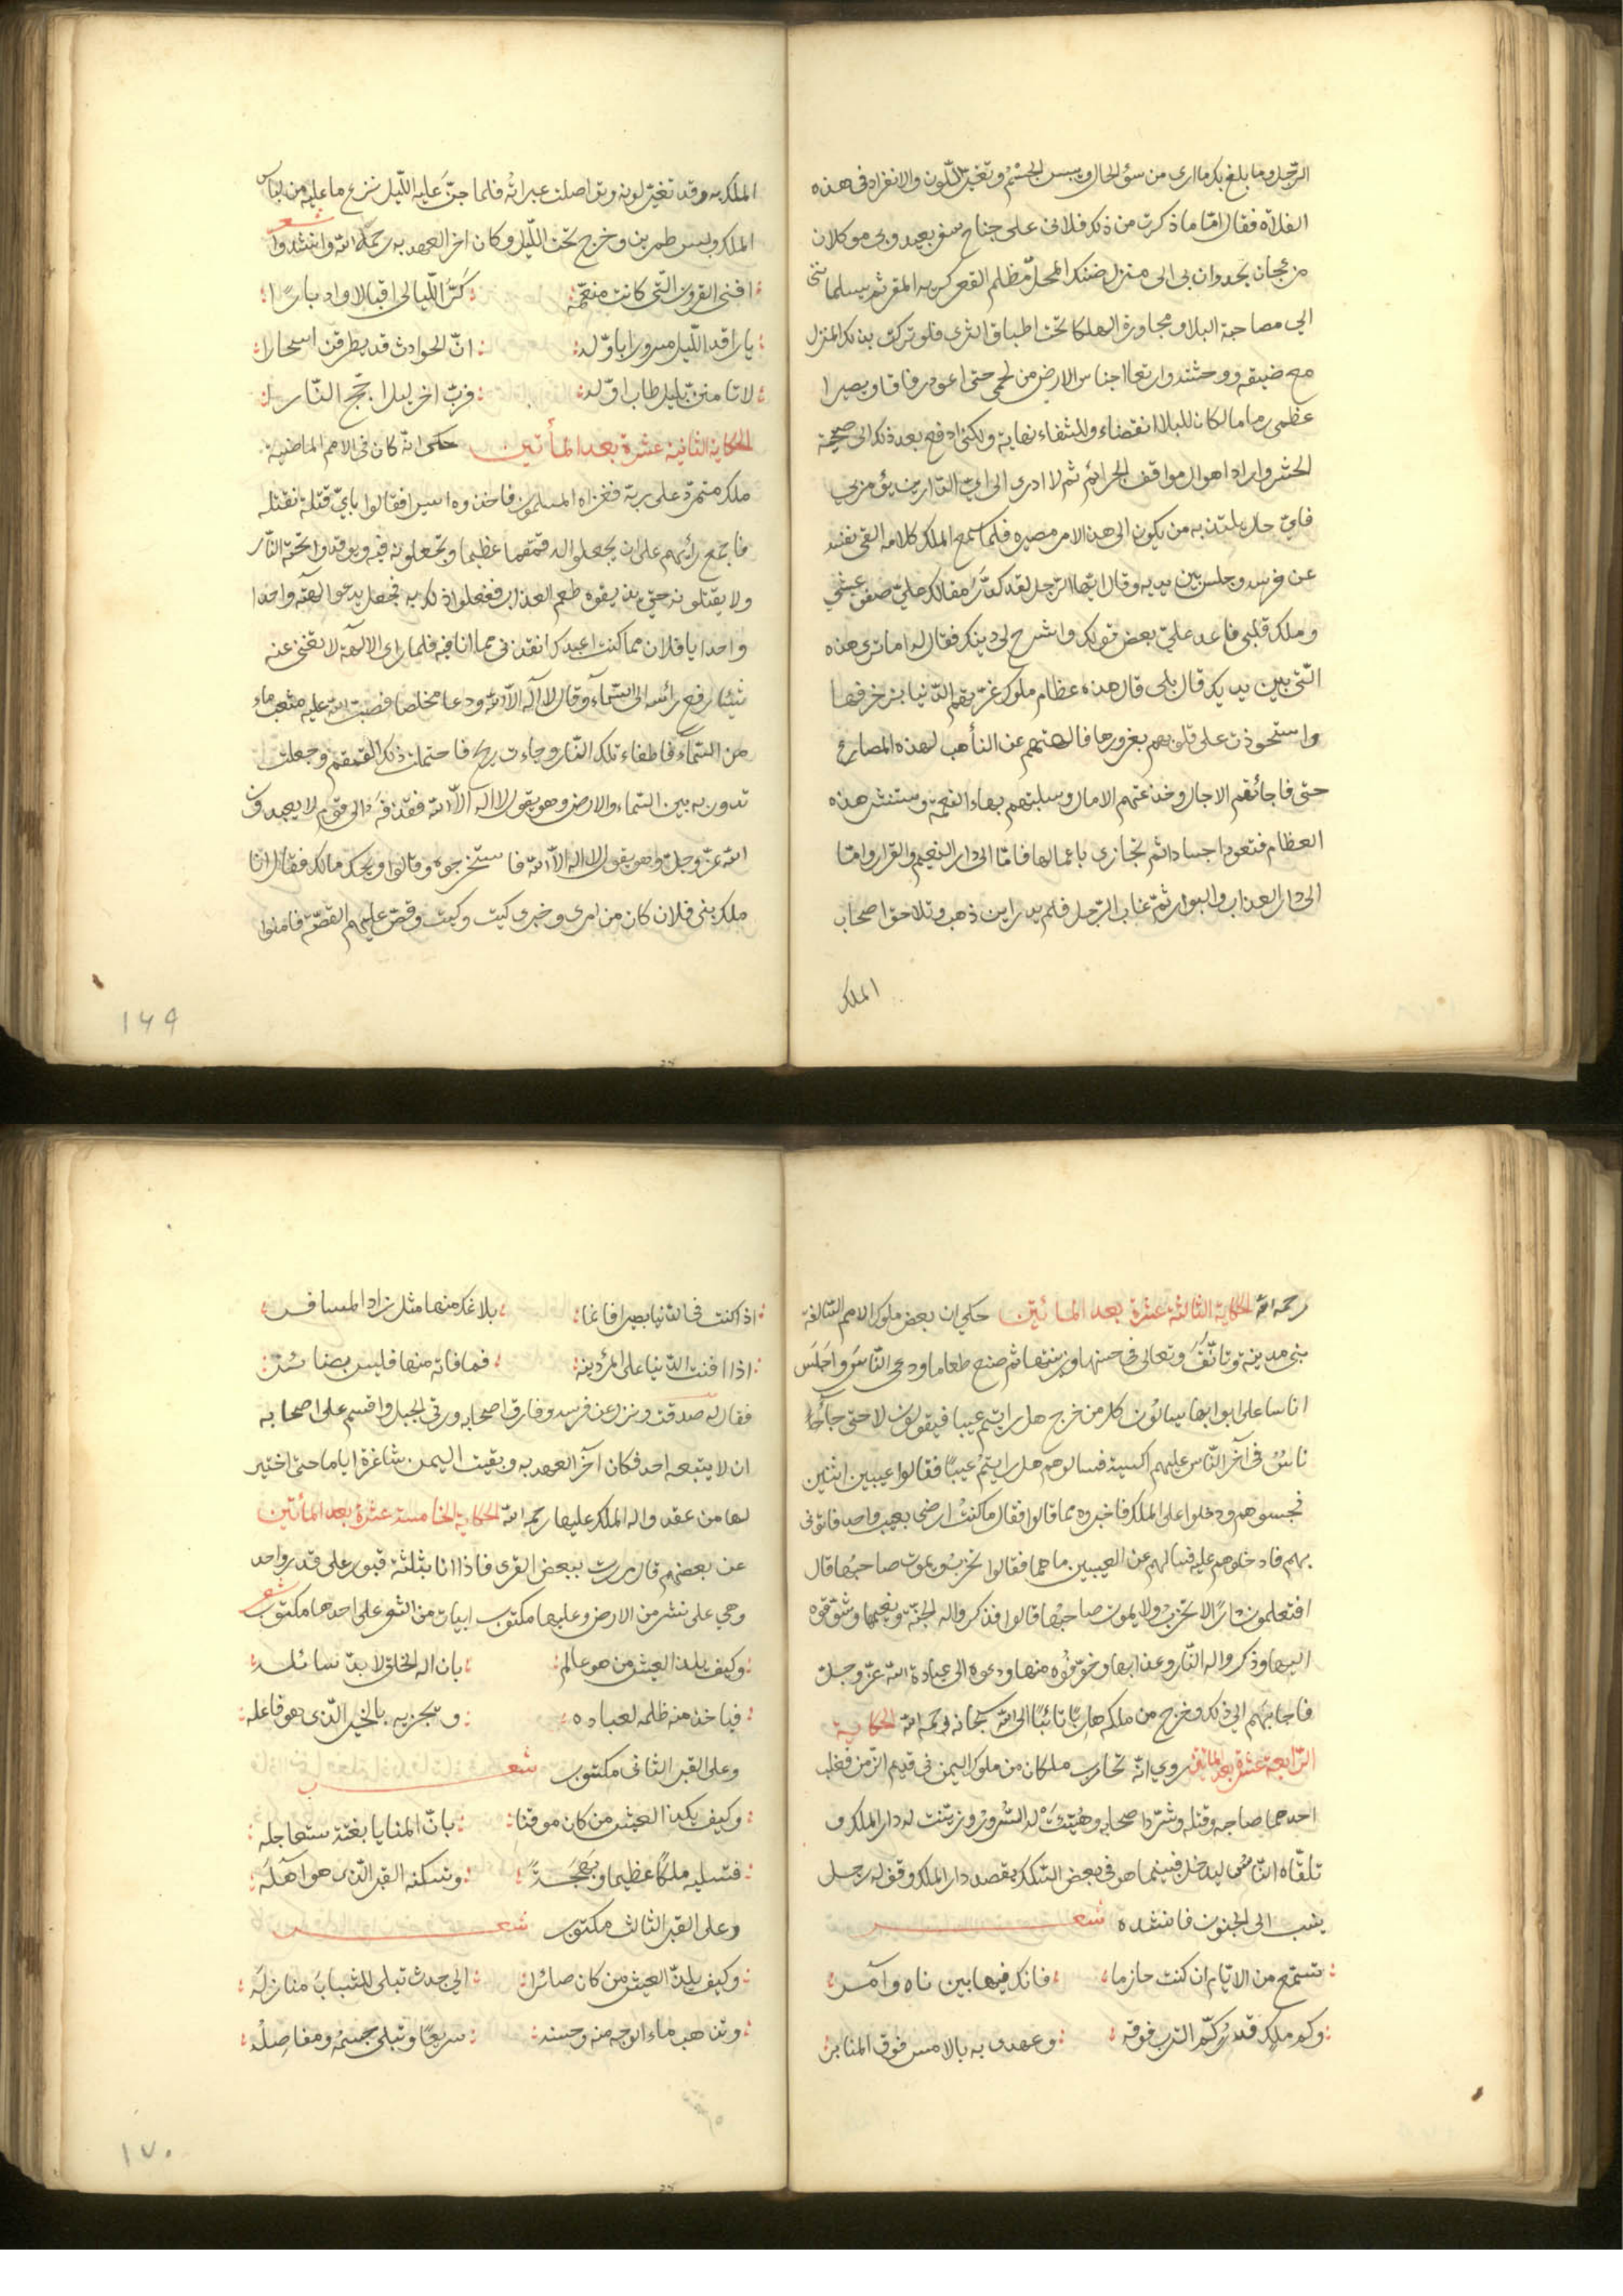 الرجل وما بلغ بك ما ارى من سوء الحال ويبس الجسم وتغير اللون والانفراد فى هذه
الفلاة فقال امّا ما ذكرت من ذلك فلانى على جناح سفر بعيد وبى موكلان
مزعجان يحدوان بى الى منزل ضنك المحلّ مظلم القعر كريه المقر ثم يسلمانى
الى مصاحبة البلا ومجاورة الهلكا تحت اطباق الثرى فلو تركت بذلك المنزل
مع ضيقه ووحشته وارتعا اجناس الارض من لحمى حتى اعود رفاتا وبصيرا
عظمى رماما لكان للبلاء انقضاء وللشقاء نهاية ولكنى ادفع بعد ذلك الى صيحة
الحشر وايراد اهوال مواقف الجرائم ثم لا ادرى الى اىّ الدارين يؤمر بى
فاىّ حال يلتذ به من يكون الى هذا الامر مصيره فلمّا سمع الملك كلامه القى نفسه
عن فرسه وجلس بين يديه وقال ايّها الرجل لقد كدّر مقالك علىّ صفو عيشى
وملك قلبى فاعد علىّ بعض قولك واشرح لى دينك فقال له اما ترى هذه
الّتى بين يديك قال بلى قال هذه عظام ملوك غرّتهم الدّنيا بزخرفها
واستحوذت على قلوبهم بغرورها فالهتهم عن التأهب لهذه المصارع
حتى فاجائتهم الاجال وخذعتهم الامال وسلبتهم بهاء النعمة وستنشر هذه
العظام فتعود اجسادا ثم تجازى باعمالها فامّا الى دار النعيم والقرار وامّا
الى دار العذاب والبوار ثمّ غاب الرّجل فلم يدر اين ذهب وتلاحق اصحاب
الملك
الملك به وقد تغيّر لونه وتواصلت عبراته فلما جنّ عليه اللّيل نزع ما عليه من لباس
الملك ولبس طمرين وخرج تحت اللّيل وكان اخر العهد به رحمه الله وانشدوا شعر
افنى القرون التى كانت منعّمة كرّ اللّيالى اقبالا وادبارًا
يا راقد اللّيل مسرورا باوّله انّ الحوادث قد يطرقن اسحارا
لا تامننّ بليل طاب اوّله فربّ اخر ليل اجّج النّار
الحكاية الثانية عشرة بعد المأتين حكى انّه كان فى الامم الماضية
ملك متمرّد على ربّه فغزاه المسلمون فاخذوه اسيرا فقالوا باىّ قتلة نقتله
فاجمع رأيهم على ان يجعلوا له قمقما عظيما ويجعلونه فيه ويوقدوا تحته النّار
ولا يقتلونه حتّى يذيقوه طعم العذاب ففعلوا ذلك به فجعل يدعوا الهته واحدا
واحدا يا فلان مما كنت اعبدك انقذنى مما انا فيه فلما راى الالهة لا تغنى عنه
شيئا رفع رأسه الى السّماء وقال لا اله الّا الله ودعا مخلصا فصبّ الله عليه مثعب ماء
من السّماء فاطفاء تلك النّار وجاءت ريح فاحتملت ذلك القمقم وجعلت
تدور به بين السّماء والارض وهو يقول لا اله الّا الله فقذفه الى قوم لا يعبدون
الله عزّ وجلّ وهو يقول لا اله الّا الله فاستخرجوه وقالوا ويحك مالك فقال انا
ملك بنى فلان كان من امرى وخبرى كيت وكيت وقصّ عليهم القصّة فامنوا
١٦٩
رحمه الله الحكاية الثالثة عشرة بعد المائتين حكى ان بعض ملوك الامم السّالفة
بنى مدينة وتانّق وتعالى فى حسنها وزينتها ثم صنع طعاما ودعى النّاس واجلس
اناسا على ابوابها يسالون كل من خرج هل رايتم عيبا فيقولون لا حتى جاء
ناسٌ فى آخر النّاس عليهم اكسية فسالوهم هل رايتم عيبًا فقالوا عيبين اثنين
فحبسوهم ودخلوا على الملك فاخبروه بما قالوا فقال ما كنت ارضى بعيب واحد فاتونى
بهم فادخلوهم عليه فسالهم عن العيبين ما هما فقالوا تخرب ويموت صاحبها قال
افتعلمون دارًا لا تخرب ولا يموت صاحبها قالوا فذكروا له الجنّة ونعيمها وشوّقوه
اليها وذكروا له النّار وعذابها وخوّفوه منها ودعوه الى عبادة الله عزّ وجلّ
فاجابهم الى ذلك وخرج من ملكه هاربًا تائبًا الى الله سبحانه رحمه الله الحكاية
الرّابعة عشرة بعد المائتين روى انّه تحارب ملكان من ملوك اليمن فى قديم الزمن فغلب
احدهما صاحبه وقتله وشرّد اصحابه وهُيّئت له السّرور وزيّنت له دار الملك و
تلقّاه النّاس ليدخل فبينما هو فى بعض السّكك يقصد دار الملك وقف له رجل
ينسب الى الجنون فانشده شعر
تستمع من الايّام ان كنت حازما فانك فيها بين ناه وآمر
وكم ملك قد ركّم الترب فوقه وعهدى به بالامس فوق المنابر
اذا كنت فى الدّنيا بصيرا فانما بلاغك منها مثل زاد المسافر
اذا افنت الدّنيا على المرء دينه فما فاته منها فليس بضائر
فقال له صدقت ونزل عن فرسه وفارق اصحابه ورقى الجبل واقسم على اصحابه
ان لا يتبعه احد فكان آخر العهد به وبقيت اليمن شاغرة اياما حتى اختير
لها من عقد واله الملك عليها رحمه الله الحكاية الخامسة عشرة بعد المأتين
عن بعضهم قال مررت ببعض القرى فاذا انا بثلثة قبور على قدر واحد
وهى على نشر من الارض وعليها مكتوب ابيات من الشعر على احدها مكتوب شعر
وكيف يلذ العيش من هو عالم بان اله الخلق لا بدّ سائله
فياخذ منه ظلمه لعباده ويجزيه بالخير الّذى هو فاعله
وعلى القبر الثانى مكتوب شعر
وكيف يلذ العيش من كان موقنا بانّ المنايا بغتة ستعاجله
فتسلبه ملكًا عظيما وبهجةً وتسكنه القبر الّذى هو آهله
وعلى القبر الثالث مكتوب شعر
وكيف يلذّ العيش من كان صائرا الى جدث تبلى للشباب منازله
وتذهب ماء الوجه منه وحسنه سريعًا وتبلى جسمه ومفاصله
١٧٠